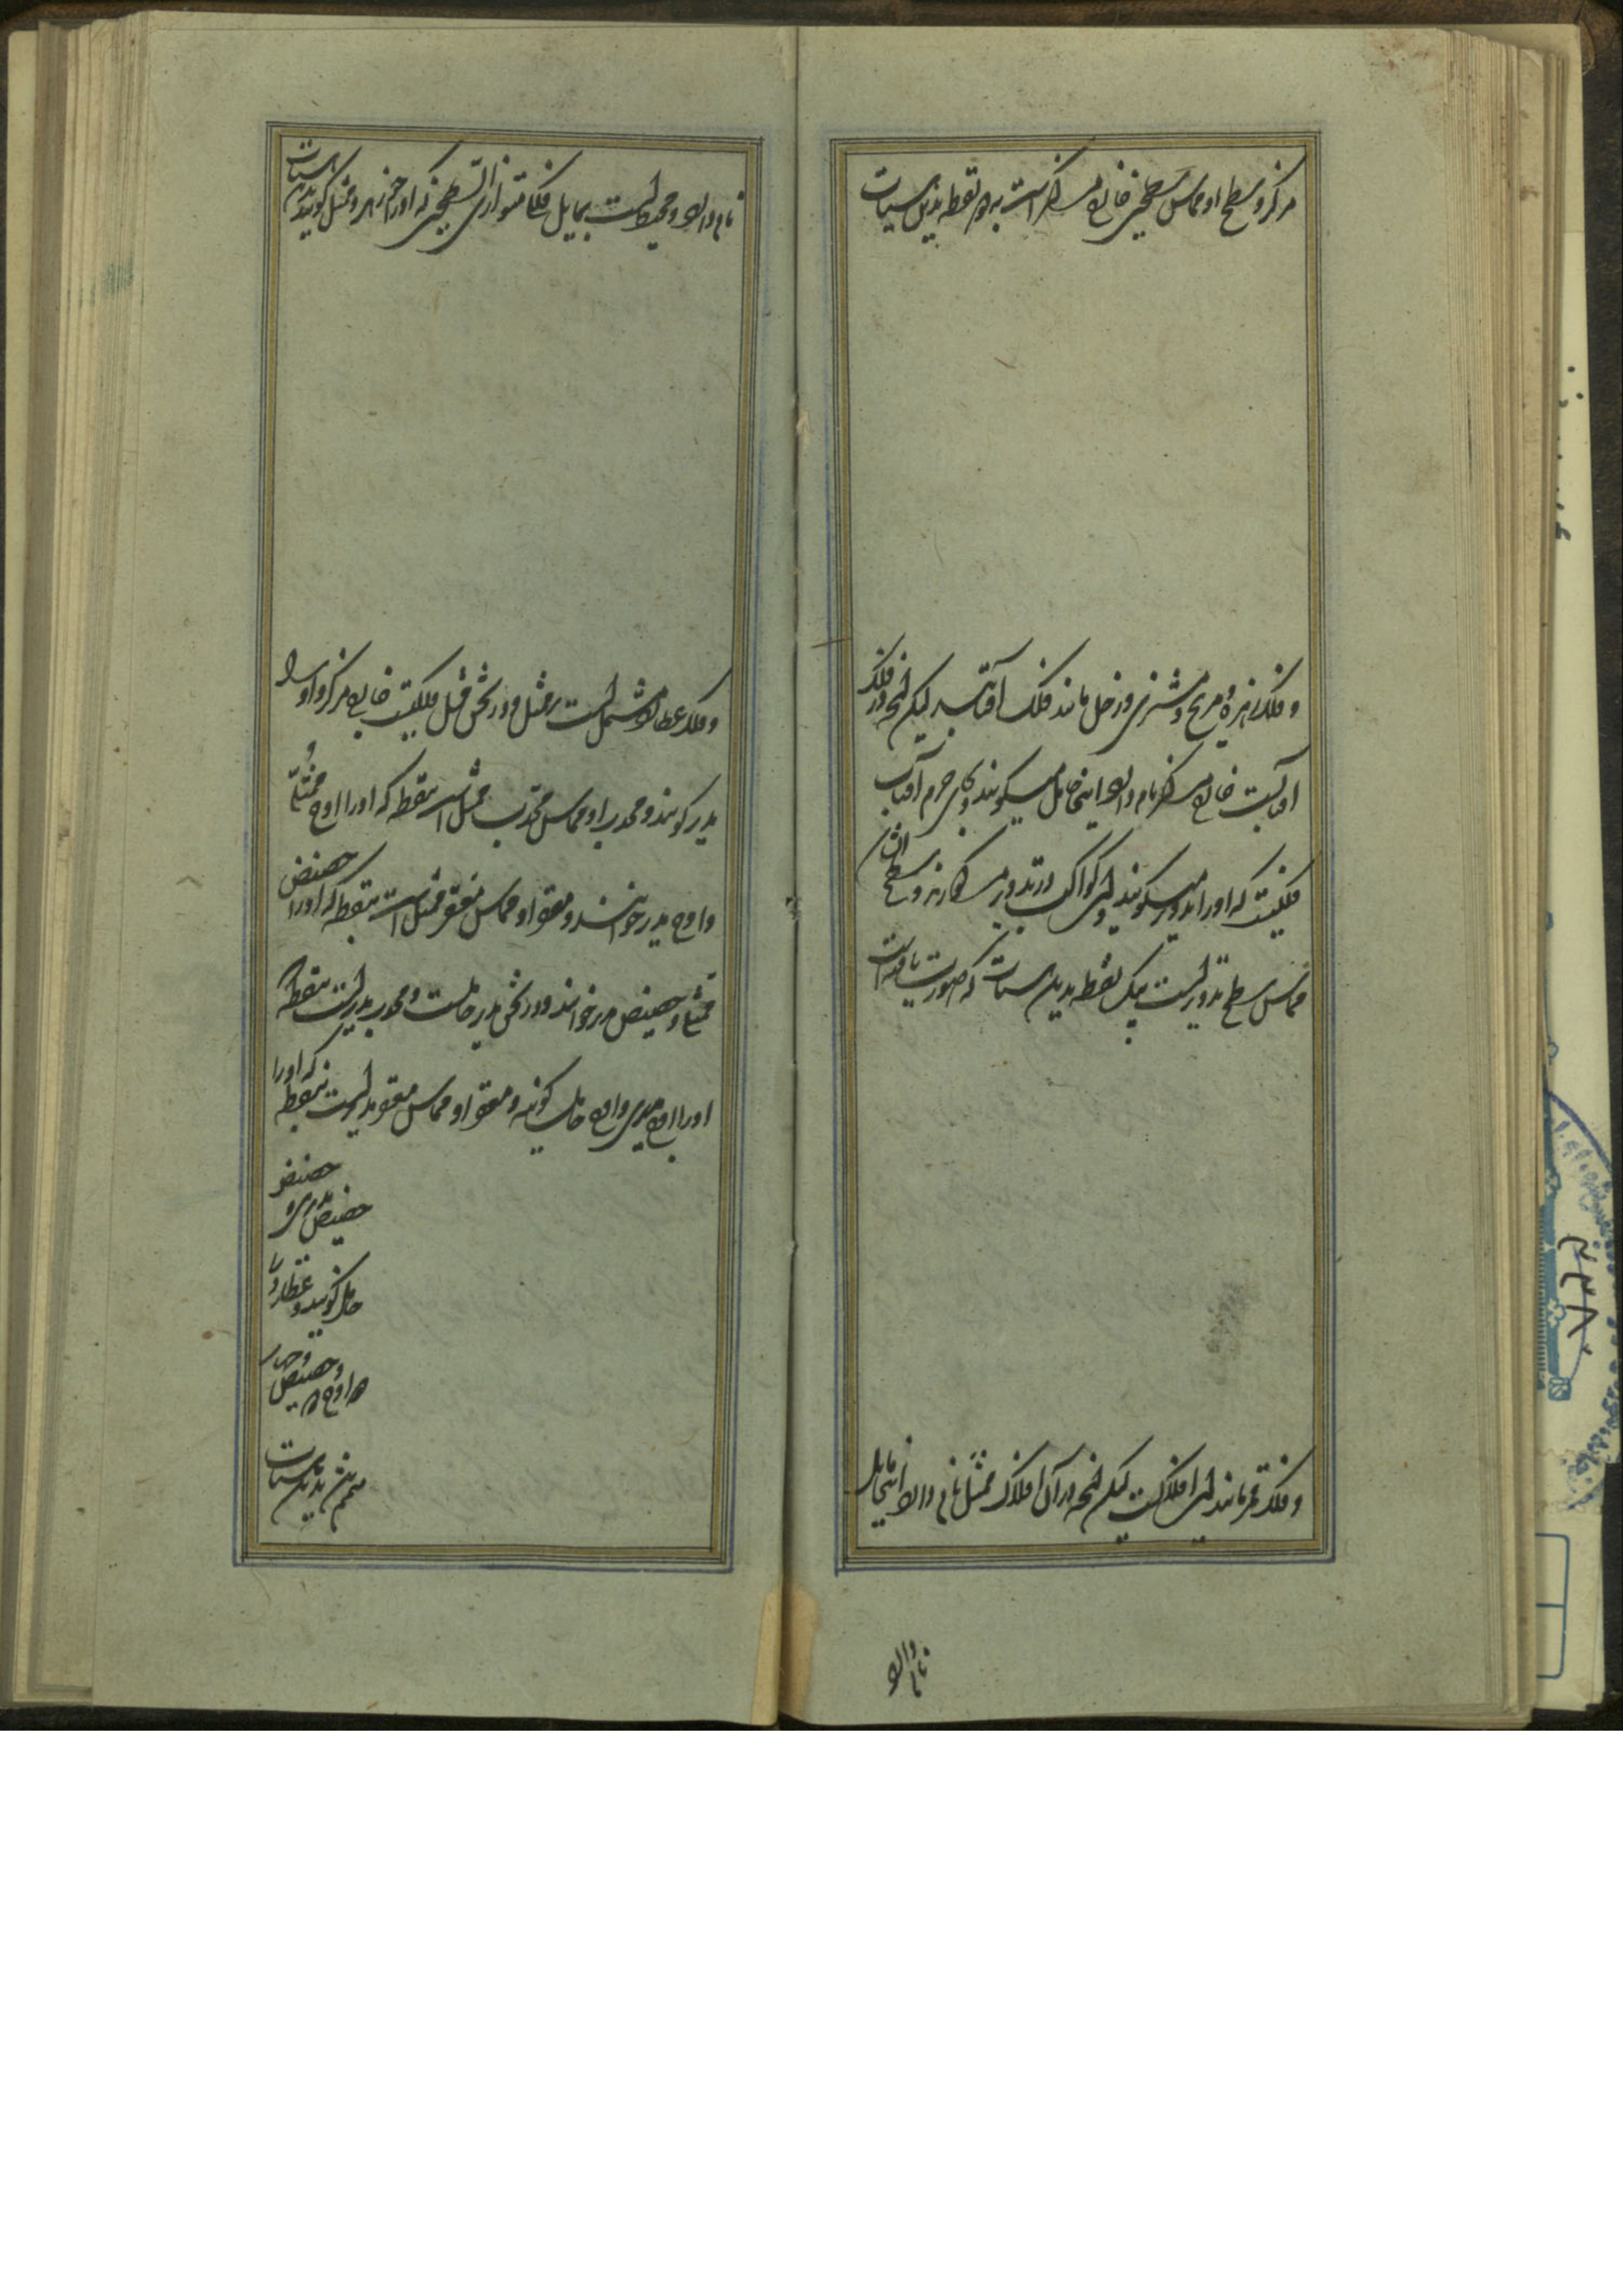 مرکز و سطح او مماس سطحین خارج مرکز است بدو نقطه بدین هیأت
و فلک زهره و مریخ و مشتری و زحل مانند فلک آفتابست لیکن آنچه در فلک
آفتابست خارج مرکز نام دارد اینجا حامل میگویند و بجای جرم آفتاب
فلکیست که او را تدویر میگویند و این کواکب در تدویر مرکوزند و سطح ایشان
مماس سطح تدویر است بیک نقطه بدین هیأت که صورت یافته است
و فلک قمر مانند این افلاکست لیکن آنچه در آن افلاک ممثل نام دارد اینجا مایل
نام دارد
نام دارد و محیط است بمایل فلکی متوازی السطحین که او را جوزهر و ممثل گویند بدین هیأت
و فلک عطارد مشتمل است بر ممثل و در ثخن ممثل فلکیست خارج مرکز و او را
مدیر گویند و محدب او مماس محدب ممثل است بنقطه که او را اوج ممثل
و اوج مدیر خوانند و مقعر او مماس مقعر ممثل است بنقطه که او را حضیض
ممثل و حضیض مدیر خوانند و در ثخن مدیر حاملست و محدب مدیر است بنقطه که
او را اوج مدیر و اوج حامل گویند و مقعر او مماس مقعر مدیر است بنقطه که او را
حضیض
مدیر و حضیض
حامل گویند و عطارد را
دو اوج و دو حضیض
بدین هیأت